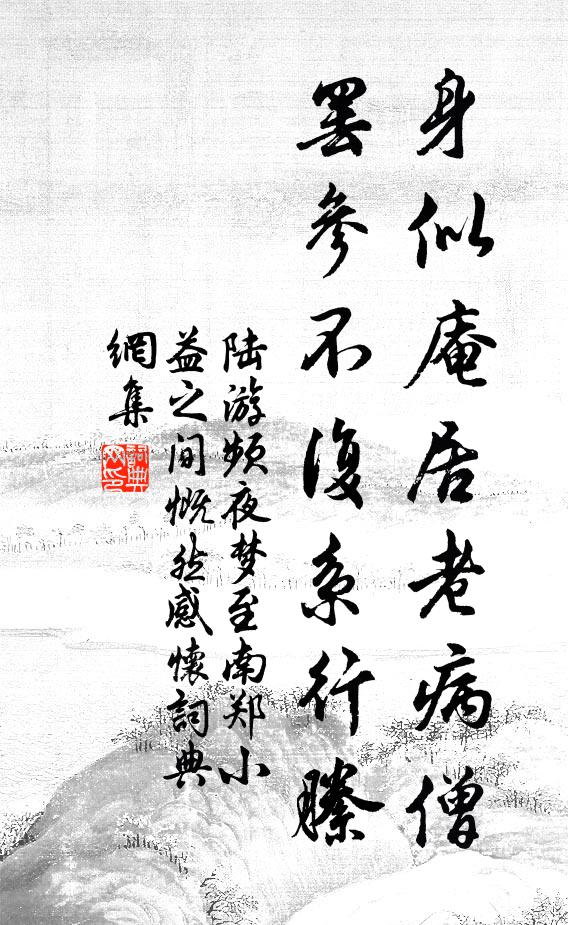 身似庵居老病僧
罢参不复系行縢
陆游频夜梦至南郑小
益之间慨然感怀詞典
網集
詞典
网印